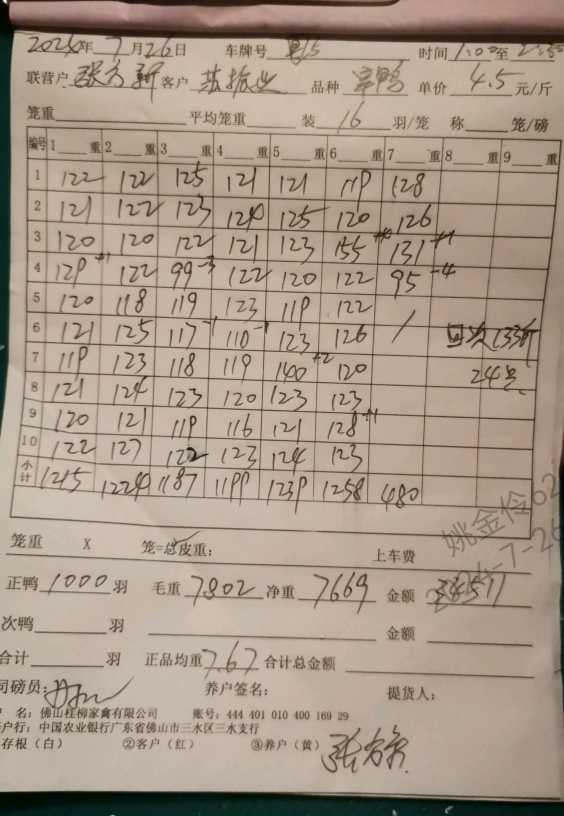 2024年 7月26日 车牌号 时间 1:00至2:50
联营户 张方新 客户 苏振业 品种 单价 4.5 元/斤
笼重 平均笼重 装 16 羽/笼 称 笼/磅
编号 1 重 2 重 3 重 4 重 5 重 6 重 7 重 8 重 9 重
1 122 122 125 121 121 119 128
2 121 122 123 124 125 120 126
3 120 120 122 121 123 155 131+1
4 129+1 122 99-3 122 120 122 95-4
5 120 118 119 123 119 122
6 121 125 117-1 110-1 123 126 / 133斤
7 119 123 118 119 140+2 120 24号
8 121 124 123 120 123 123
9 120 121 119 116 121 128+1
10 122 127 122 123 124 123
小计 1215 1224 1187 1199 1239 1258 480
笼重 X 笼=总皮重: 上车费
姚金伶62
2024-7-26
正鸭 1000 羽 毛重 7802 净重 7669 金额 34511
次鸭 羽 金额
合计 羽 正品均重 7.67 合计总金额
司磅员: 养户签名: 提货人:
户 名: 佛山桂柳家禽有限公司 账号: 444 401 010 400 169 29
开户行: 中国农业银行广东省佛山市三水区三水支行
存根(白) ②客户(红) ③养户(黄)